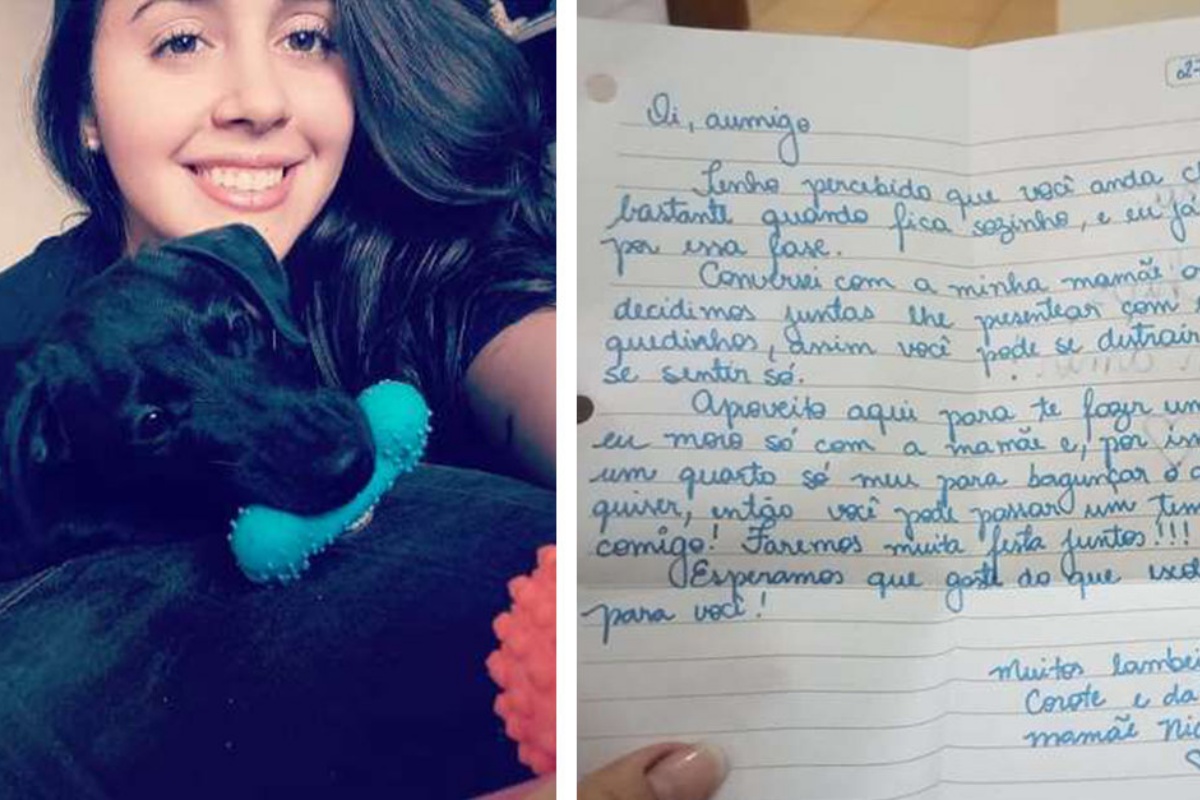 Oi, aumigo
Tenho percebido que você anda
bastante quando fica sozinho, e eu já
por essa fase.
Conversei com a minha mamãe
decidimos juntas lhe presentear com
quedinhos, assim você pode se distrair
se sentir só.
Aproveito aqui para te fazer um
eu moro só com a mamãe e, por
um quarto só meu para bagunçar o
quiser, então você pode passar um tem
comigo! Faremos muita festa juntos!!!
Esperamos que goste do que esco
para você!
Muitos lambei
Corote e da
mamãe Nic